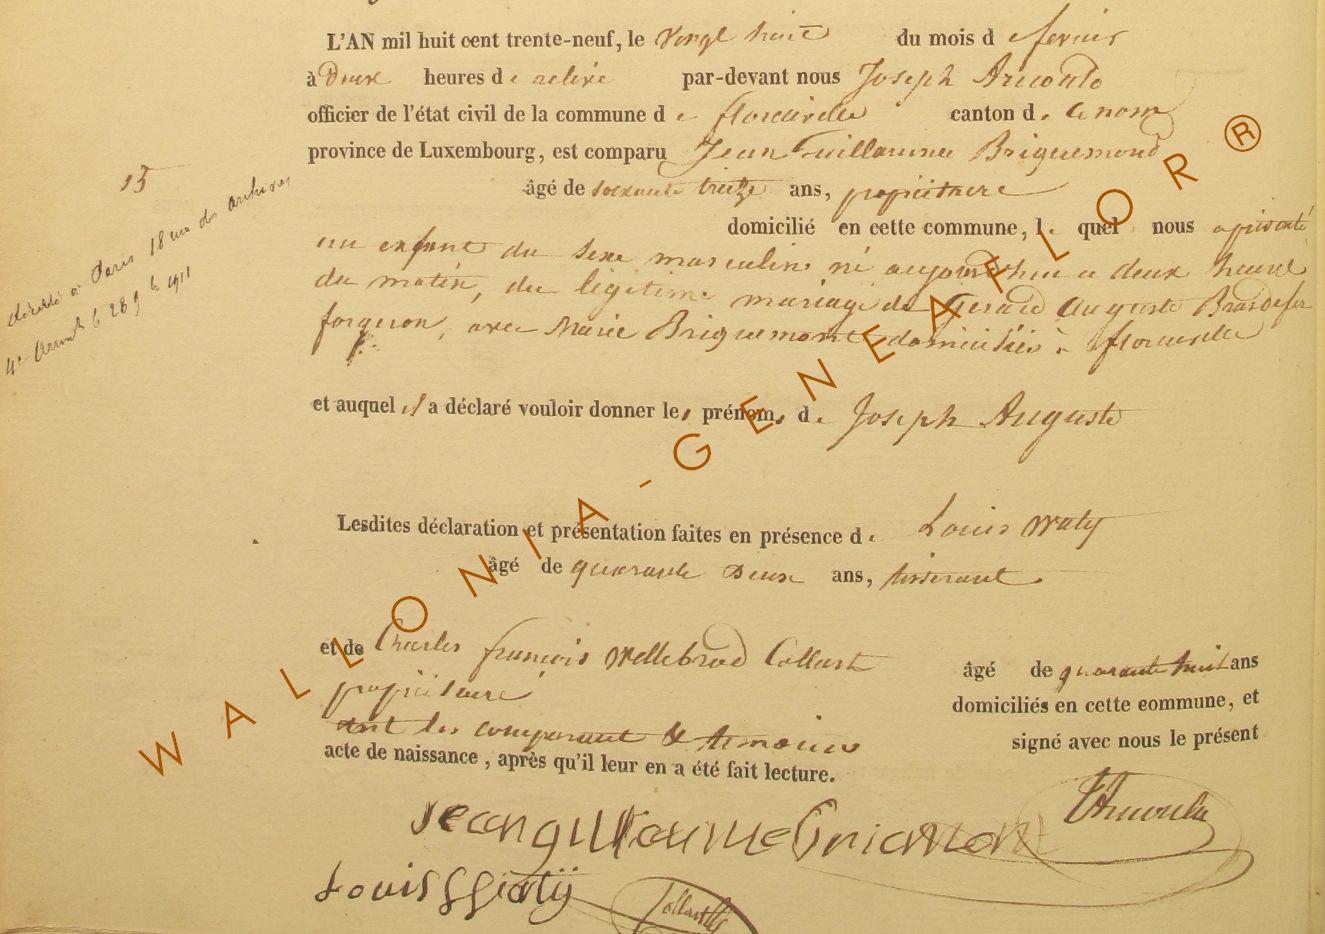 L'AN mil huit cent trente-neuf, le Vingt huit du mois de fevrier
à Deux heures de relevé par-devant nous Joseph Arnould
officier de l'état civil de la commune de florenville canton de
province de Luxembourg, est comparu Jean Guillaume Briquemond
âgé de soixante treize ans, propriétaire
domicilié en cette commune, le quel nous a présenté
un enfant du sexe masculin né aujourd'hui a deux heures
du matin, du légitime mariage de Gerard Auguste Brasdefer
forgeron, avec Marie Briquemont domiciliés à florenville
et auquel il a déclaré vouloir donner les prénoms de Joseph Auguste
Lesdites déclaration et présentation faites en présence de Louis Waty
âgé de quarante Deux ans, tisserant
et de Charles francois Willebrod Collart
âgé de quarante huit ans
propriétaire
domiciliés en cette commune, et
ont les comparant & temoins
signé avec nous le présent
acte de naissance, après qu'il leur en a été fait lecture.
Jean guillaume
Louis Waty
15
décédé à Paris 18 des archives
4e le 28 9bre 1911
WALLONIA-GENEAFLOR®